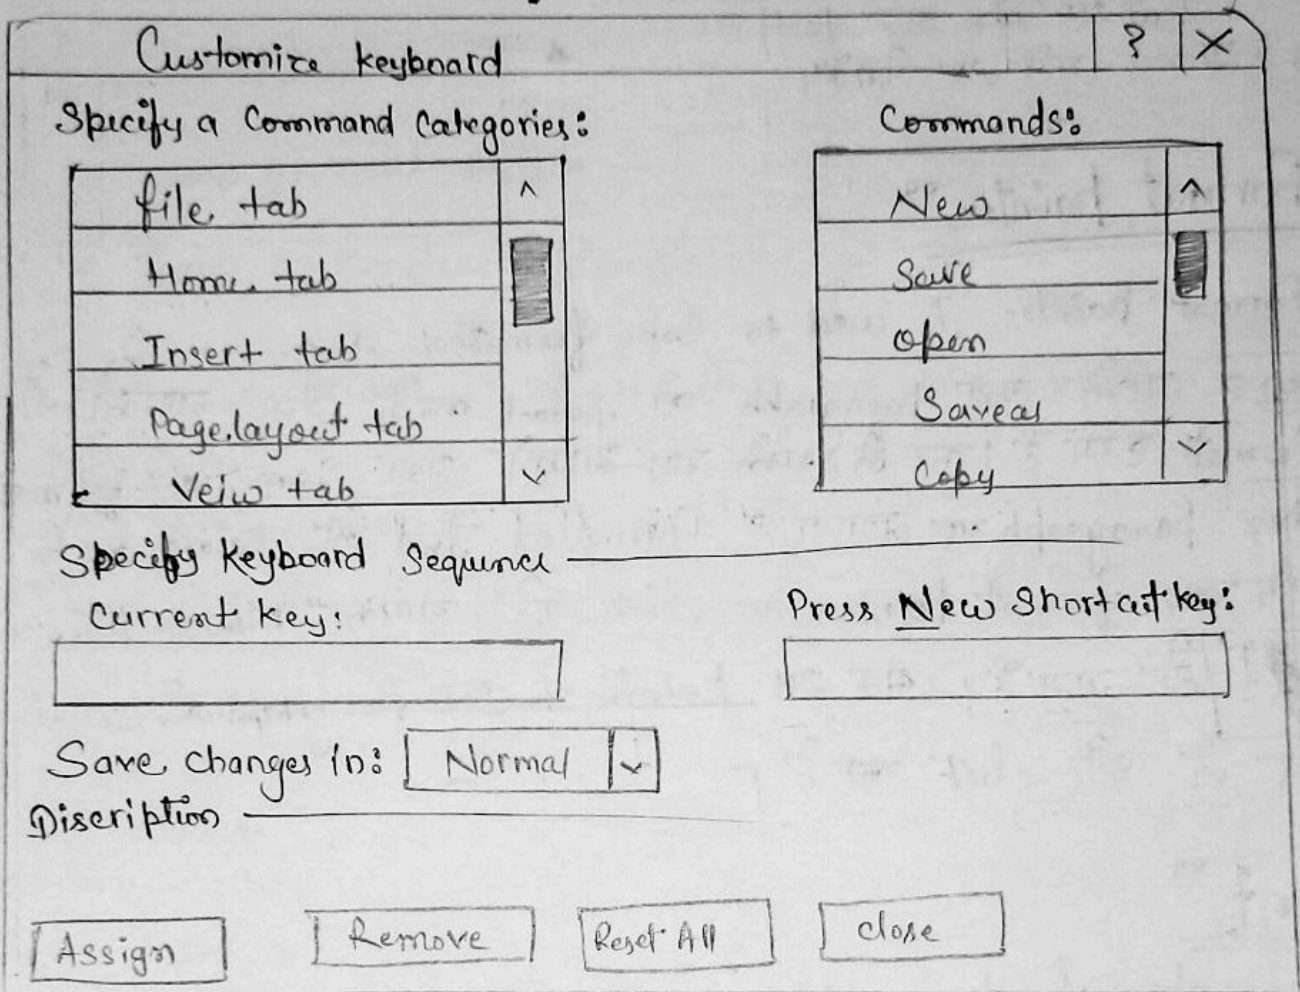 Customize keyboard ? X
Specify a Command Categories:
file tab
Home tab
Insert tab
Page layout tab
Veiw tab
Commands:
New
Save
open
Saveas
Copy
Specify Keyboard Sequence
Current key:
Press New Shortcut key:
Save changes in: Normal
Discription
Assign
Remove
Reset All
close